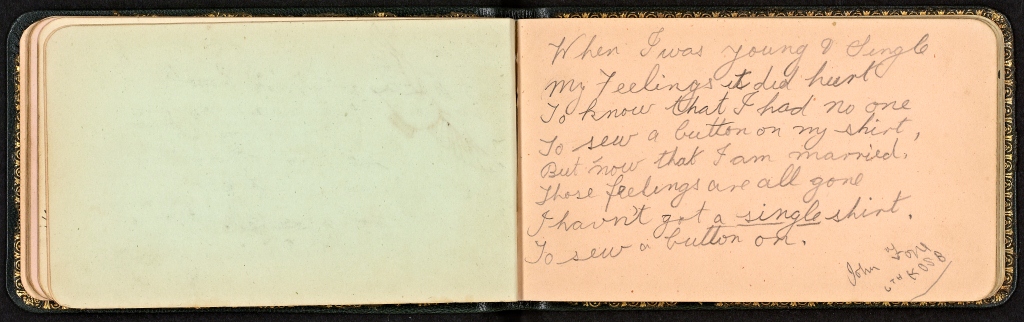 When I was young & Single.
My Feelings it did hurt
To know that I had no one
To sew a button on my shirt,
But now that I am married.
Those feelings are all gone
I havn't got a single shirt.
To sew a button on.
John
6TH KOSB